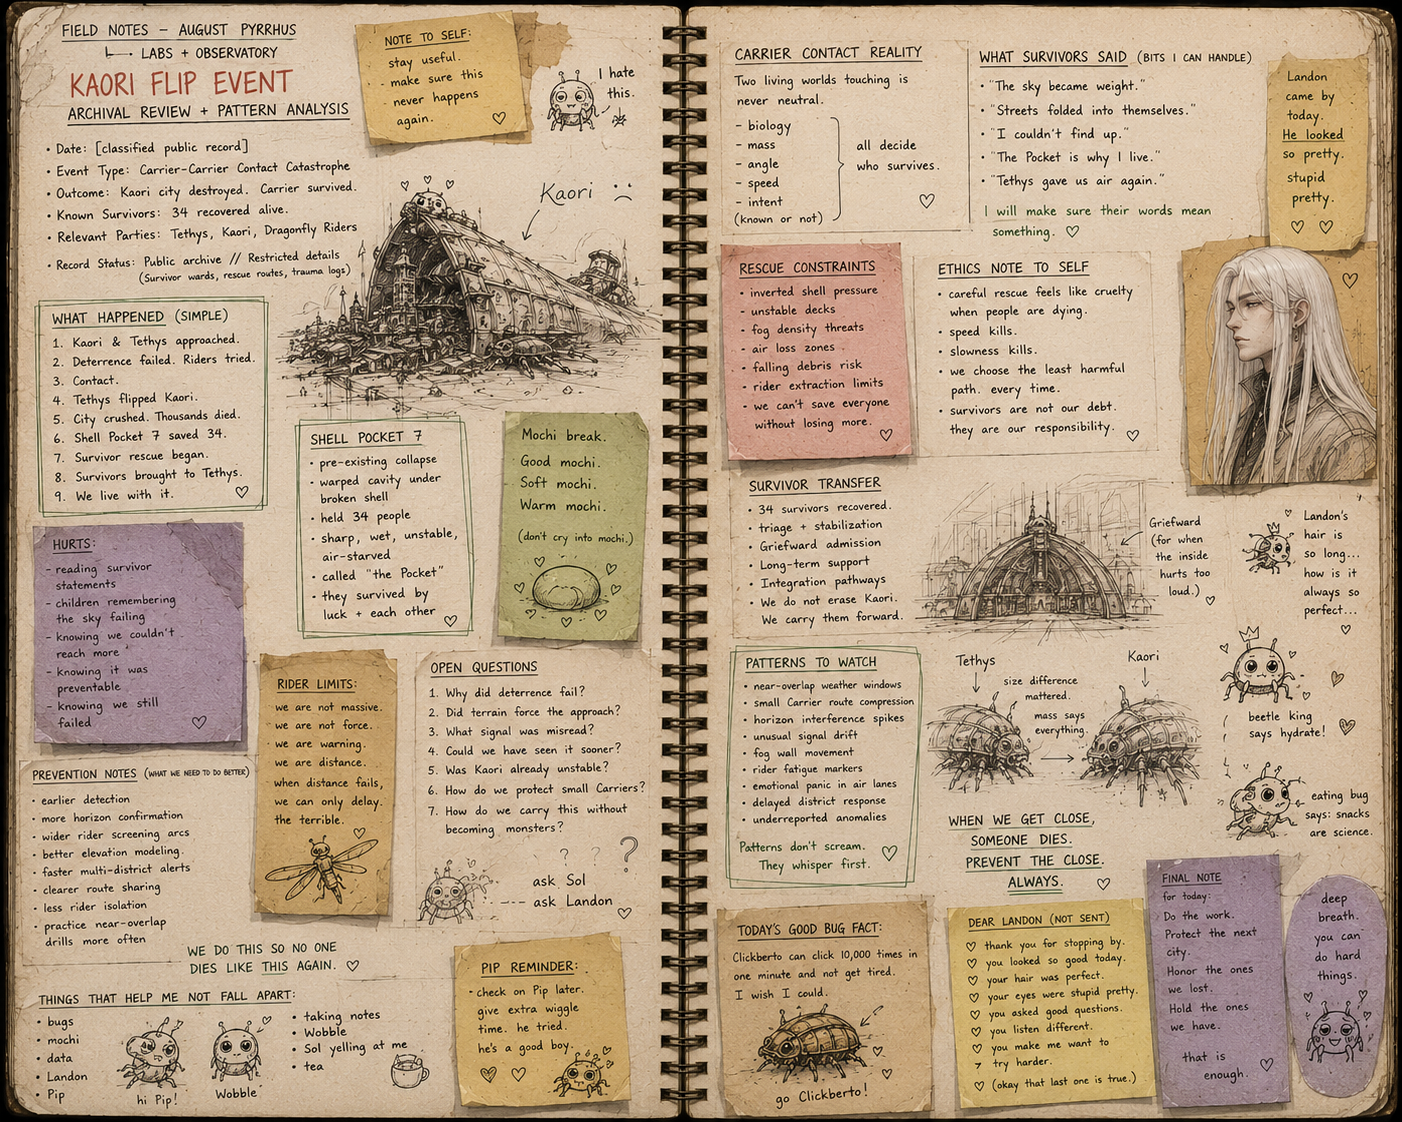 FIELD NOTES – AUGUST PYRRHUS
LABS + OBSERVATORY
KAORI FLIP EVENT
ARCHIVAL REVIEW + PATTERN ANALYSIS
• Date: [classified public record]
• Event Type: Carrier-Carrier Contact Catastrophe
• Outcome: Kaori city destroyed. Carrier survived.
• Known Survivors: 34 recovered alive.
• Relevant Parties: Tethys, Kaori, Dragonfly Riders
• Record Status: Public archive // Restricted details
(Survivor wards, rescue routes, trauma logs)
NOTE TO SELF:
stay useful.
- make sure this
never happens
again.
I hate
this.
Kaori
WHAT HAPPENED (SIMPLE)
1. Kaori & Tethys approached.
2. Deterrence failed. Riders tried.
3. Contact.
4. Tethys flipped Kaori.
5. City crushed. Thousands died.
6. Shell Pocket 7 saved 34.
7. Survivor rescue began.
8. Survivors brought to Tethys.
9. We live with it.
SHELL POCKET 7
• pre-existing collapse
• warped cavity under
broken shell
• held 34 people
• sharp, wet, unstable,
air-starved
• called "the Pocket"
• they survived by
luck + each other
Mochi break.
Good mochi.
Soft mochi.
Warm mochi.
(don't cry into mochi.)
HURTS:
- reading survivor
statements
- children remembering
the sky failing
- knowing we couldn't
reach more
- knowing it was
preventable
- knowing we still
failed
RIDER LIMITS:
we are not massive.
we are not force.
we are warning.
we are distance.
when distance fails,
we can only delay.
the terrible.
OPEN QUESTIONS
1. Why did deterrence fail?
2. Did terrain force the approach?
3. What signal was misread?
4. Could we have seen it sooner?
5. Was Kaori already unstable?
6. How do we protect small Carriers?
7. How do we carry this without
becoming monsters?
? ? ?
ask Sol
ask Landon
PREVENTION NOTES (WHAT WE NEED TO DO BETTER)
• earlier detection
• more horizon confirmation
• wider rider screening arcs
• better elevation modeling.
• faster multi-district alerts
• clearer route sharing
• less rider isolation
• practice near-overlap
drills more often
WE DO THIS SO NO ONE
DIES LIKE THIS AGAIN.
THINGS THAT HELP ME NOT FALL APART:
• bugs
• mochi
• data
• Landon
• Pip
hi Pip!
Wobble
• taking notes
• Wobble
• Sol yelling at me
• tea
PIP REMINDER:
• check on Pip later.
give extra wiggle
time. he tried.
he's a good boy.
CARRIER CONTACT REALITY
Two living worlds touching is
never neutral.
- biology
- mass
- angle
- speed
- intent
(known or not)
all decide
who survives.
WHAT SURVIVORS SAID (BITS I CAN HANDLE)
• "The sky became weight."
• "Streets folded into themselves."
• "I couldn't find up."
• "The Pocket is why I live."
• "Tethys gave us air again."
I will make sure their words mean
something.
Landon
came by
today.
He looked
so pretty.
stupid
pretty.
RESCUE CONSTRAINTS
• inverted shell pressure
• unstable decks
• fog density threats
• air loss zones
• falling debris risk
• rider extraction limits
• we can't save everyone
without losing more.
ETHICS NOTE TO SELF
• careful rescue feels like cruelty
when people are dying.
• speed kills.
• slowness kills.
• we choose the least harmful
path. every time.
• survivors are not our debt.
they are our responsibility.
SURVIVOR TRANSFER
• 34 survivors recovered.
• triage + stabilization
• Griefward admission
• Long-term support
• Integration pathways
• We do not erase Kaori.
We carry them forward.
Griefward
(for when
the inside
hurts too
loud.)
Landon's
hair is
so long...
how is it
always so
perfect...
PATTERNS TO WATCH
• near-overlap weather windows
• small Carrier route compression
• horizon interference spikes
• unusual signal drift
• fog wall movement
• rider fatigue markers
• emotional panic in air lanes
• delayed district response
• underreported anomalies
Patterns don't scream.
They whisper first.
Tethys
Kaori
size difference
mattered.
mass says
everything.
beetle king
says hydrate!
eating bug
says: snacks
are science.
WHEN WE GET CLOSE,
SOMEONE DIES.
PREVENT THE CLOSE.
ALWAYS.
TODAY'S GOOD BUG FACT:
Clickberto can click 10,000 times in
one minute and not get tired.
I wish I could.
go Clickberto!
DEAR LANDON (NOT SENT)
♡ thank you for stopping by.
♡ you looked so good today.
♡ your hair was perfect.
♡ your eyes were stupid pretty.
♡ you asked good questions.
♡ you listen different.
♡ you make me want to
try harder.
♡ (okay that last one is true.)
FINAL NOTE
for today:
Do the work.
Protect the next
city.
Honor the ones
we lost.
Hold the ones
we have.
that is
enough.
deep
breath.
you can
do hard
things.